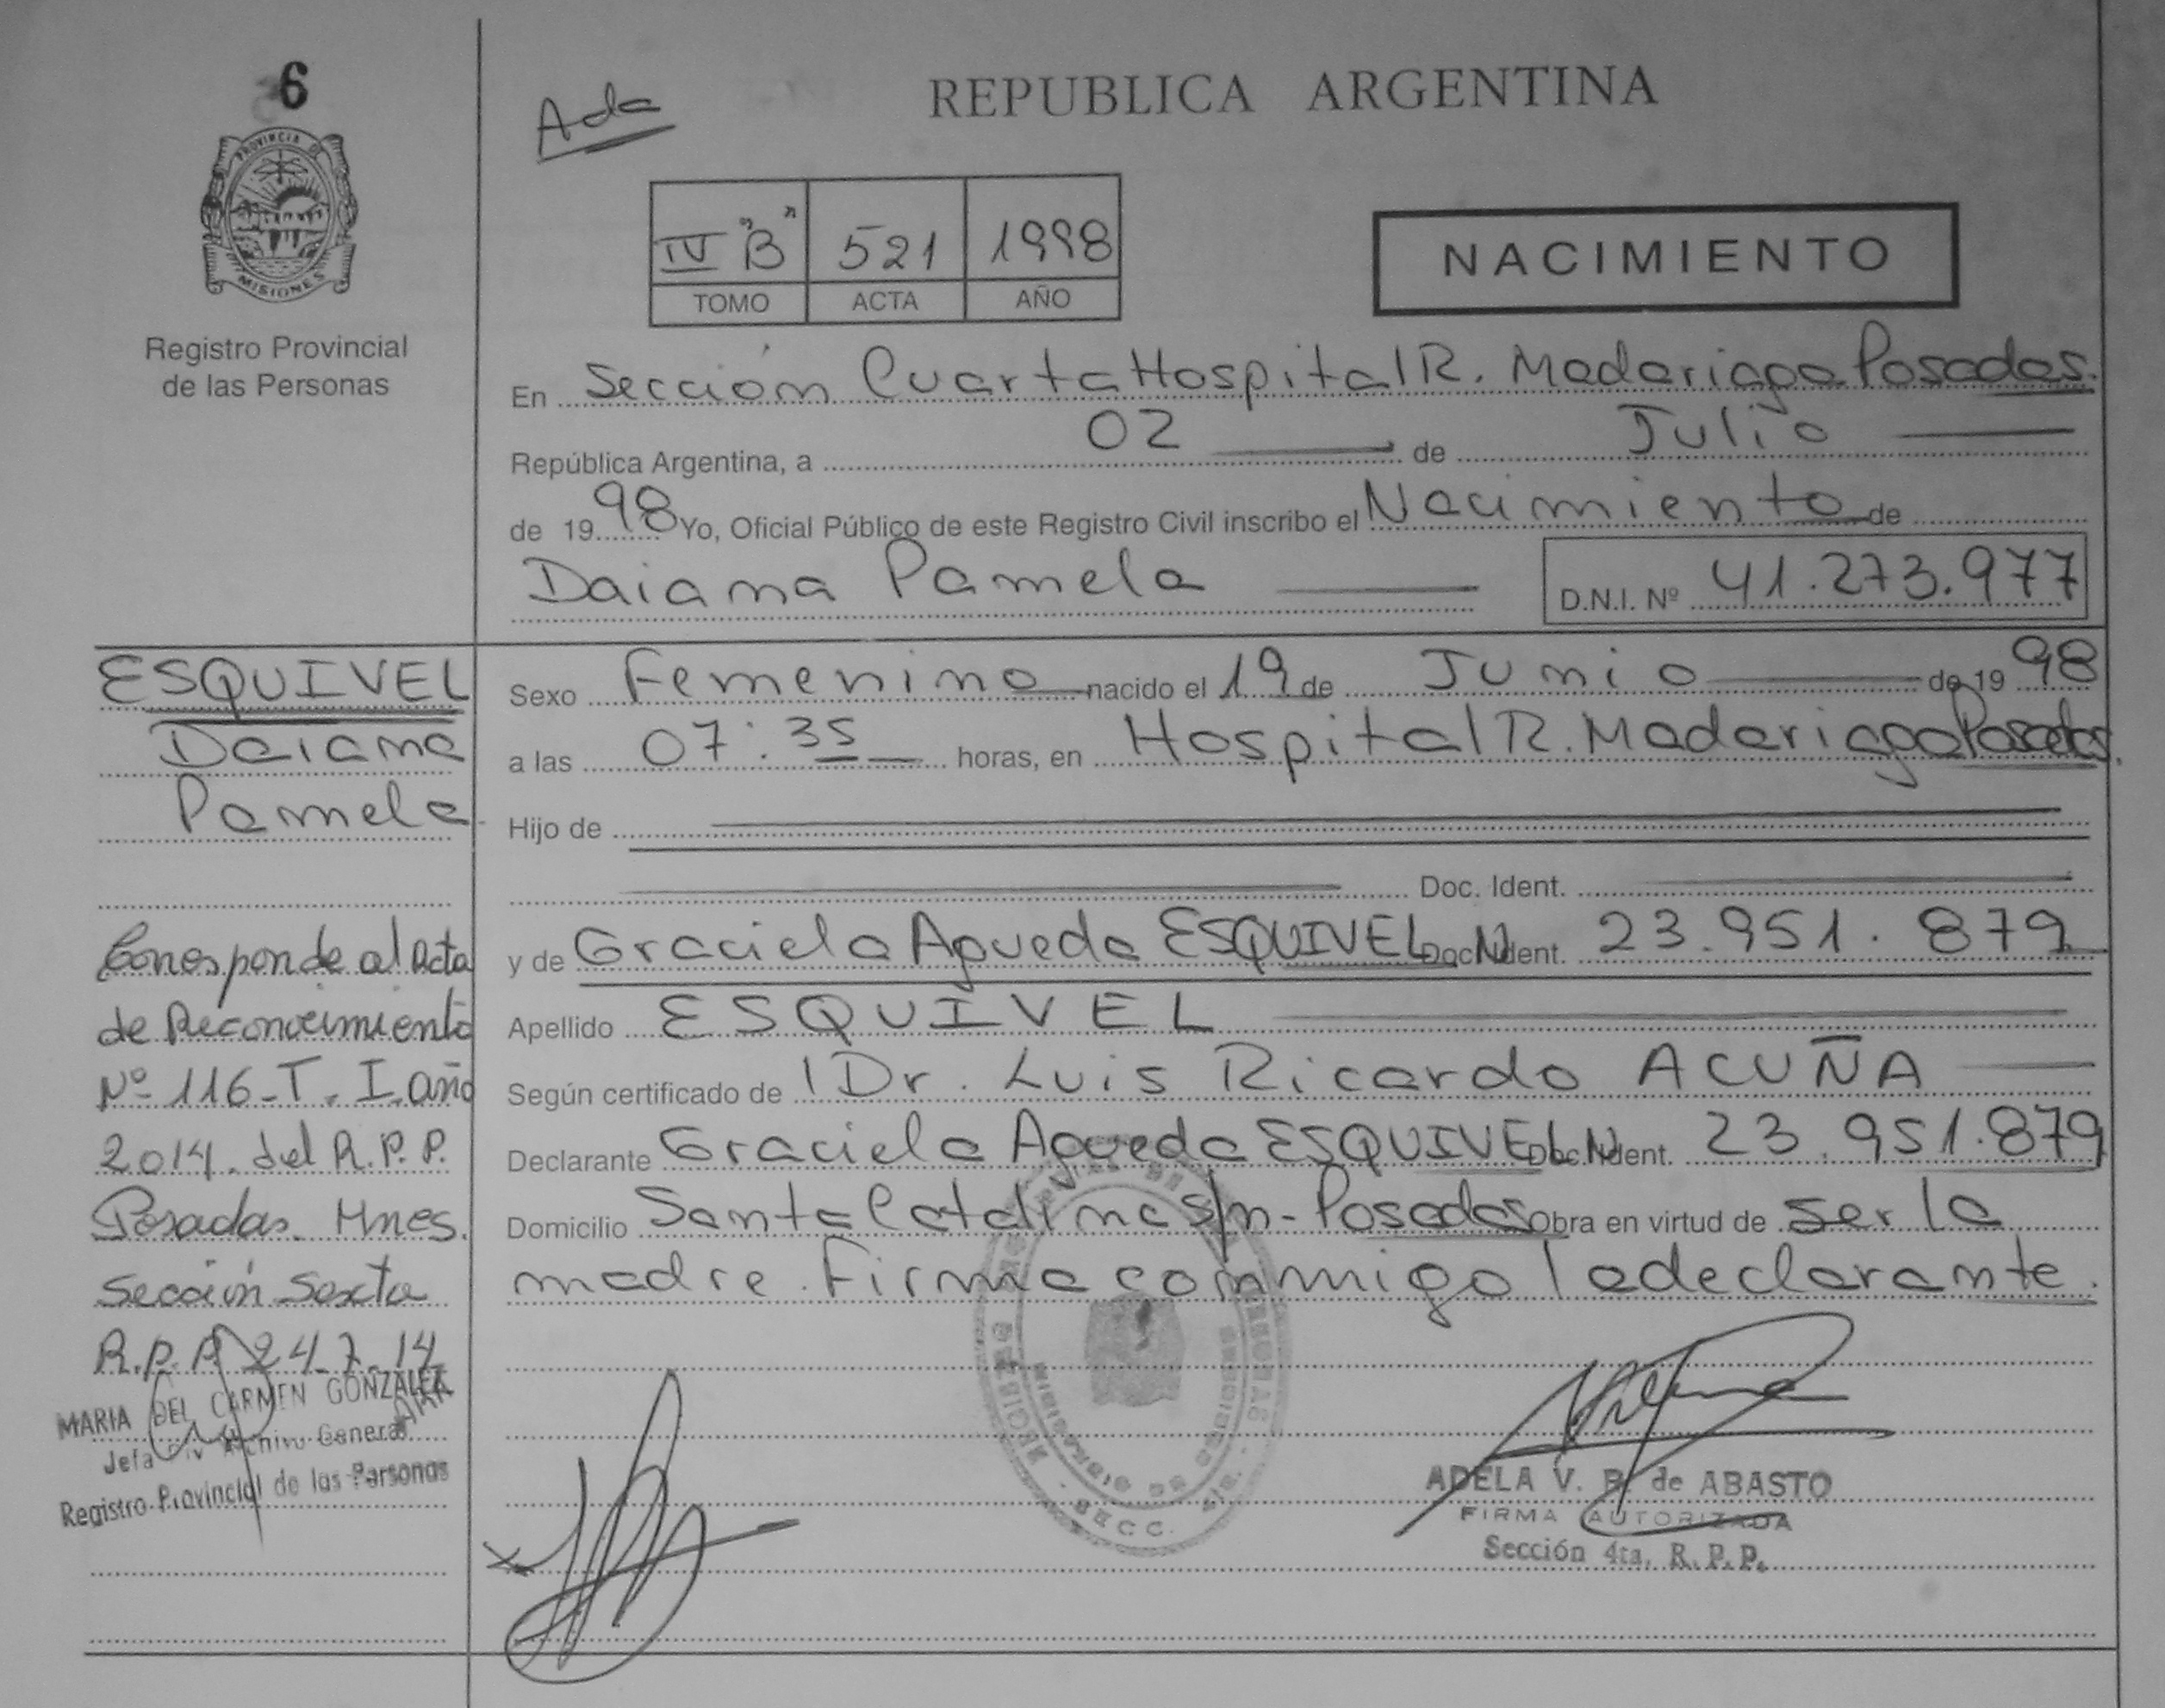 6
PROVINCIA DE
MISIONES
Registro Provincial
de las Personas
Ada
REPUBLICA ARGENTINA
IV "B" 521 1998
TOMO ACTA AÑO
NACIMIENTO
En Sección Cuarta Hospital R. Madariaga Posadas.
República Argentina, a 02 de Julio
de 1998 Yo, Oficial Público de este Registro Civil inscribo el Nacimiento de
Daiana Pamela D.N.I. Nº 41.273.977
Sexo Femenino nacido el 19 de Junio de 1998
a las 07:35 horas, en Hospital R. Madariaga Posadas.
Hijo de
Doc. Ident.
y de Graciela Agueda ESQUIVEL Doc. Ident. 23.951.879
Apellido ESQUIVEL
Según certificado de Dr. Luis Ricardo ACUÑA
Declarante Graciela Agueda ESQUIVEL Doc. Ident. 23.951.879
Domicilio Santa Catalina s/n - Posadas Obra en virtud de ser la
madre. Firma conmigo la declarante.
ESQUIVEL
Daiana
Pamela
Corresponde al Acta
de Reconocimiento
Nº 116-T. I. año
2014. del R.P.P.
Posadas. Mnes.
Sección Sexta
R.P.P. 24-7-14
MARIA DEL CARMEN GONZALEZ
Jefa Div Archivo General
Registro Provincial de las Personas
ADELA V. B. de ABASTO
FIRMA AUTORIZADA
Sección 4ta, R.P.P.